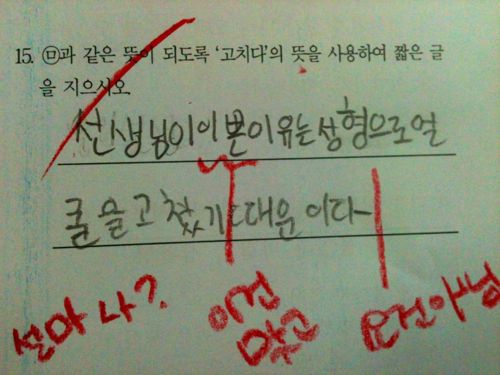 15. ㉤과 같은 뜻이 되도록 '고치다'의 뜻을 사용하여 짧은 글
을 지으시오
선생님이 이쁜이유는 상형으로 얼
굴을 고쳤기 때운이다
설마 나?
이건 맞고
요건 아님